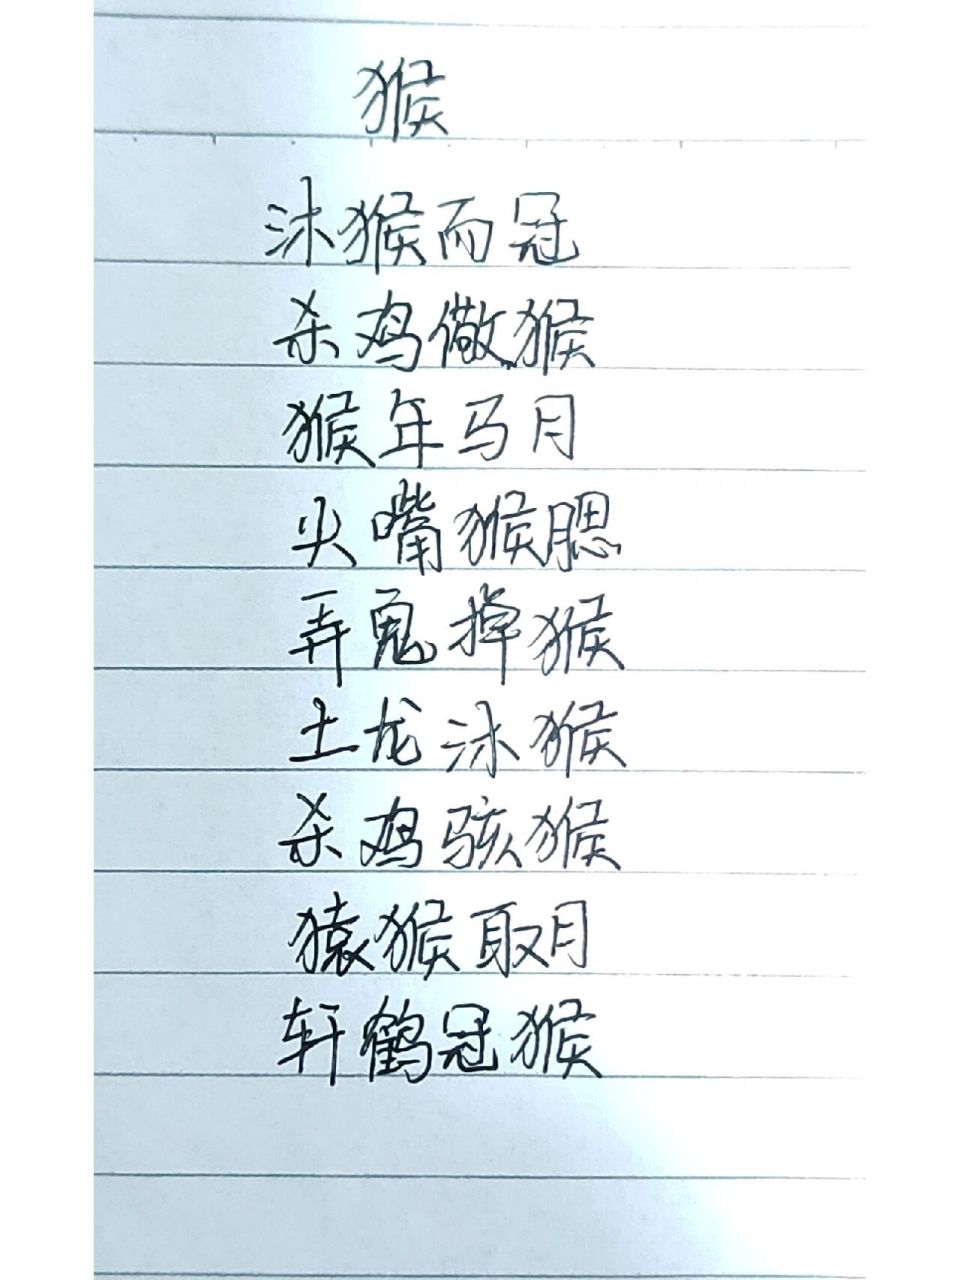 猴
沐猴而冠
杀鸡儆猴
猴年马月
尖嘴猴腮
弄鬼掉猴
土龙沐猴
杀鸡骇猴
猿猴取月
轩鹤冠猴